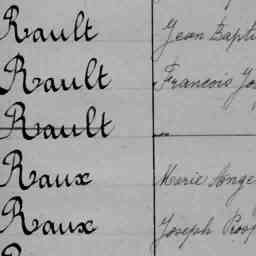 Rault Jean Bapti
Rault Francois Jo
Rault
Raux Marie Ange
Raux Joseph Prosp